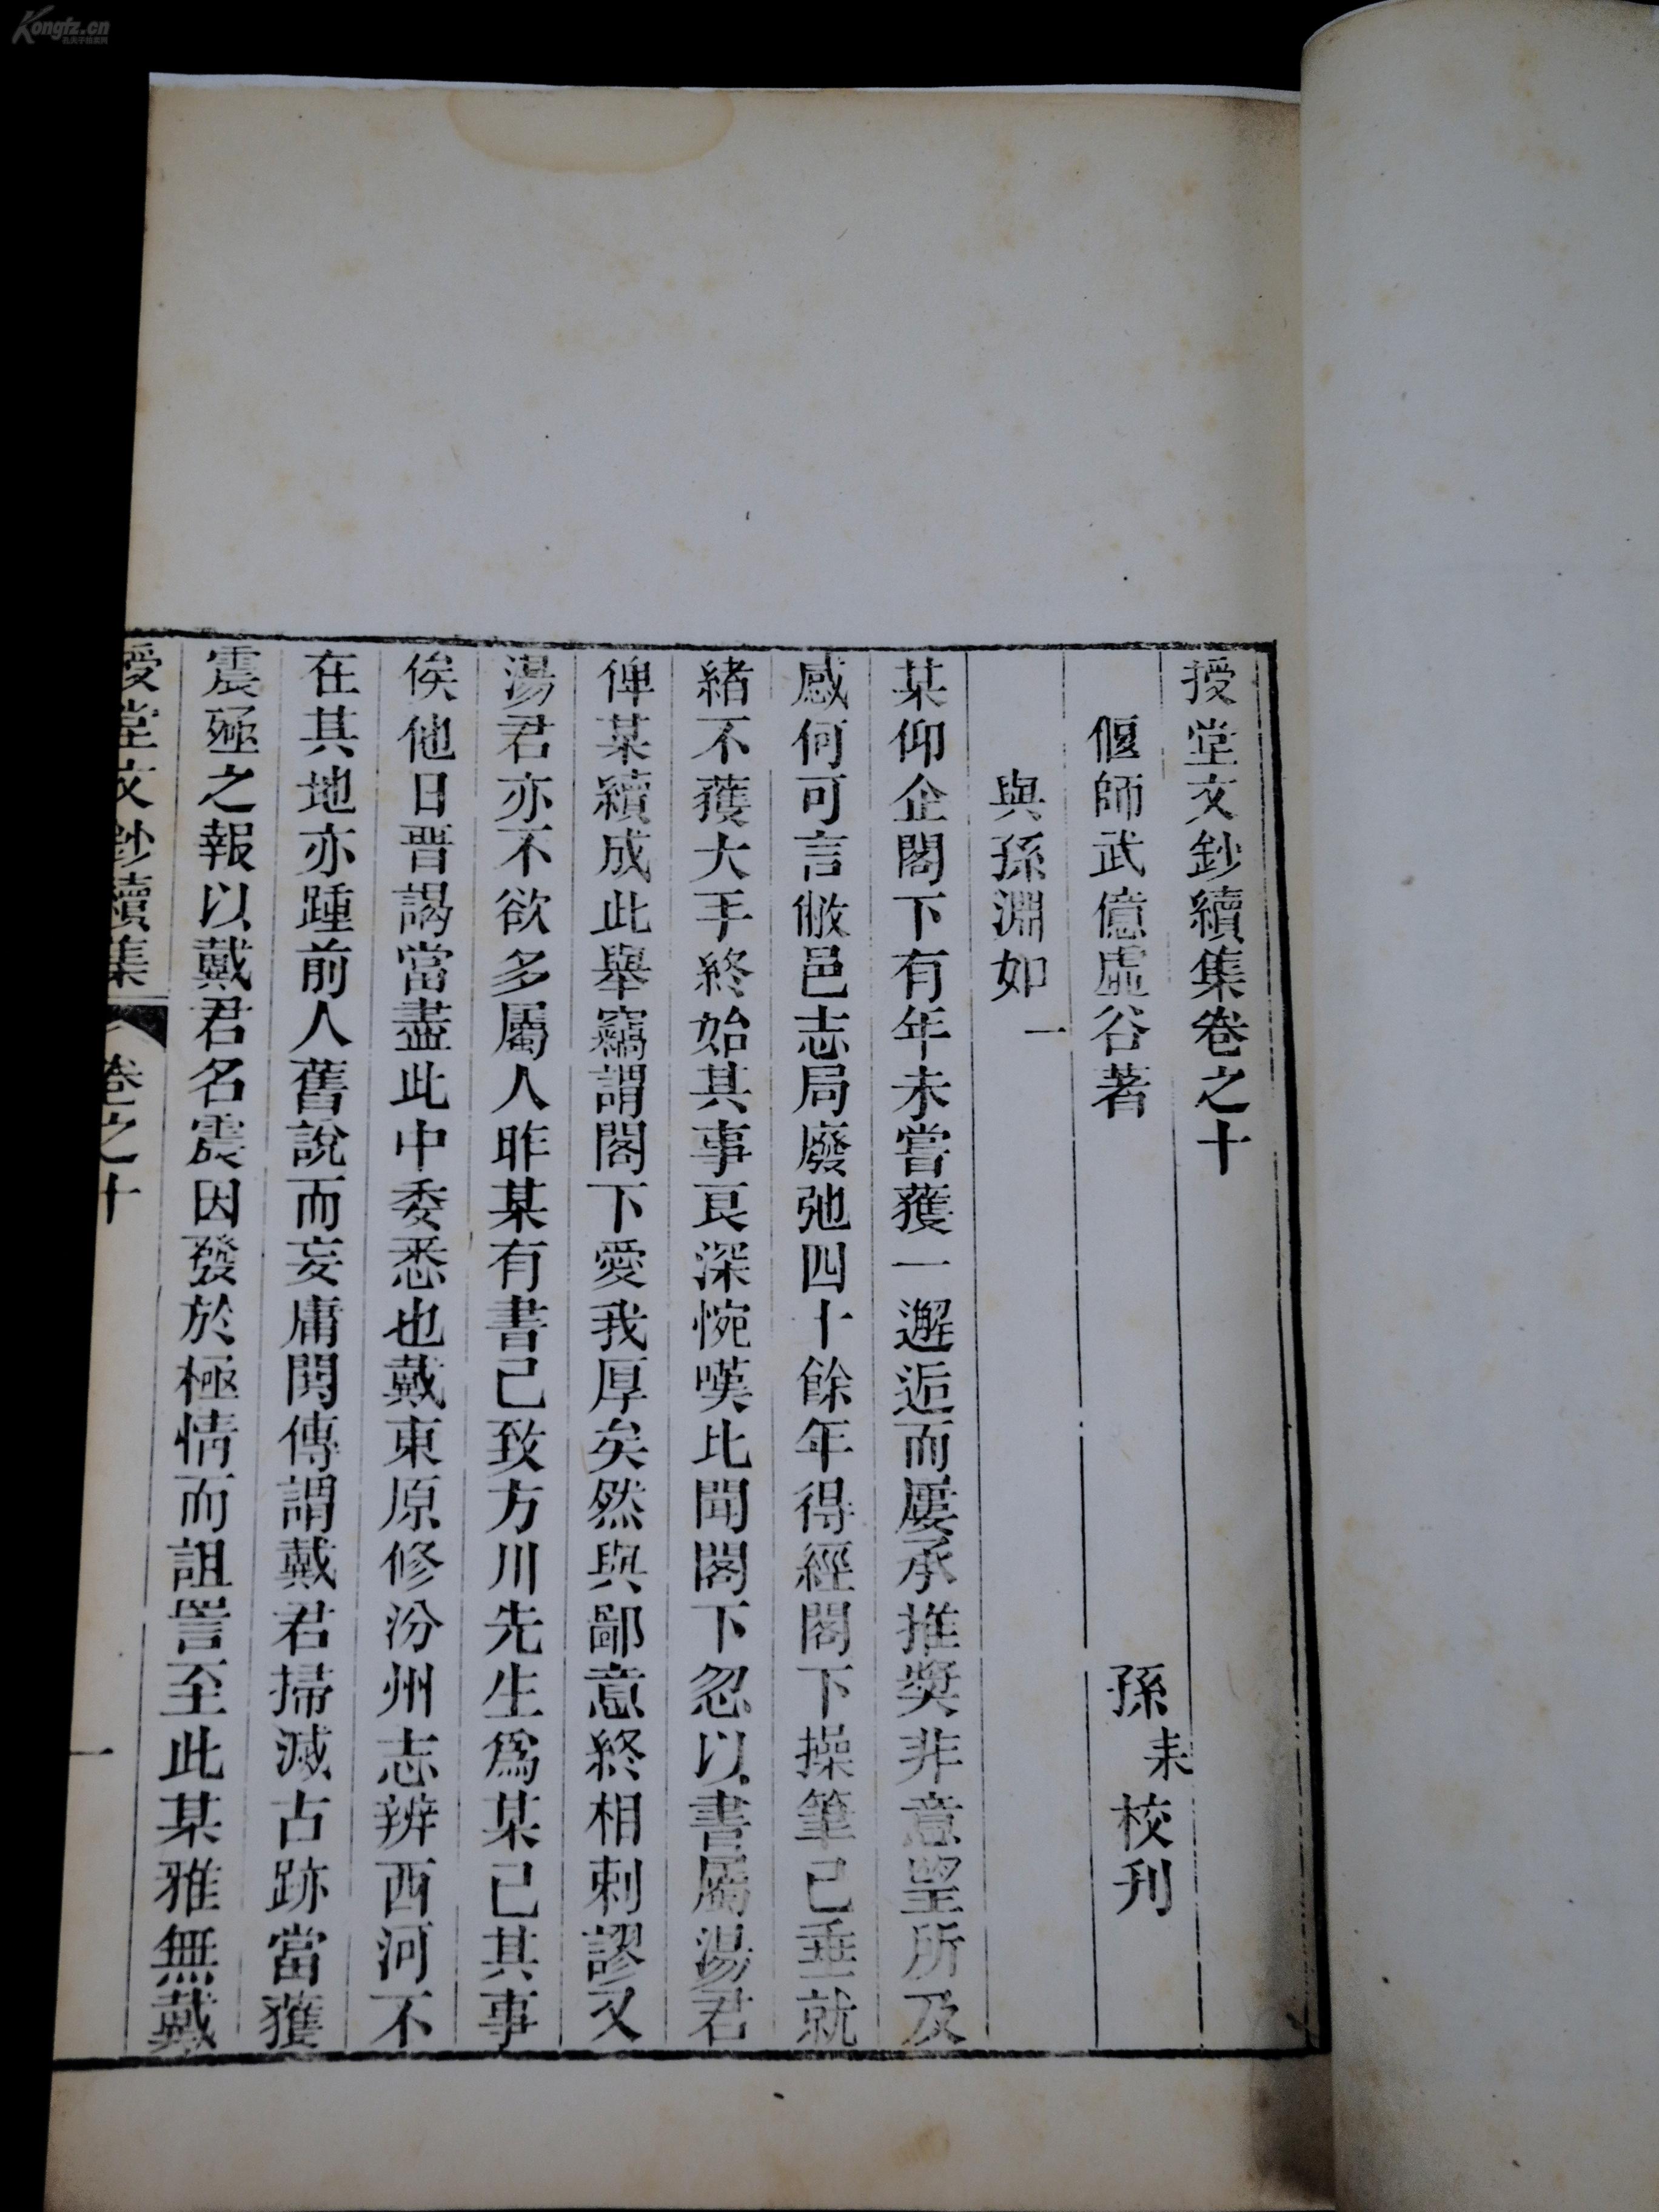 授堂文鈔續集卷之十
偃師武億虛谷著
孫耒校刊
與孫淵如一
某仰企閣下有年未嘗獲一邂逅而屢承推奬非意望所及
感何可言敝邑志局廢弛四十餘年得經閣下操筆已垂就
緒不獲大手終始其事良深惋嘆比聞閣下忽以書屬湯君
俾某續成此舉竊謂閣下愛我厚矣然與鄙意終相刺謬又
湯君亦不欲多屬人昨某有書已致方川先生爲某已其事
俟他日晋謁當盡此中委悉也戴東原修汾州志辨西河不
在其地亦踵前人舊說而妄庸閧傳謂戴君掃滅古跡當獲
震殛之報以戴君名震因發於極情而詛詈至此某雅無戴
授堂文鈔續集
卷之十
一
Kongfz.cn
孔夫子旧书网